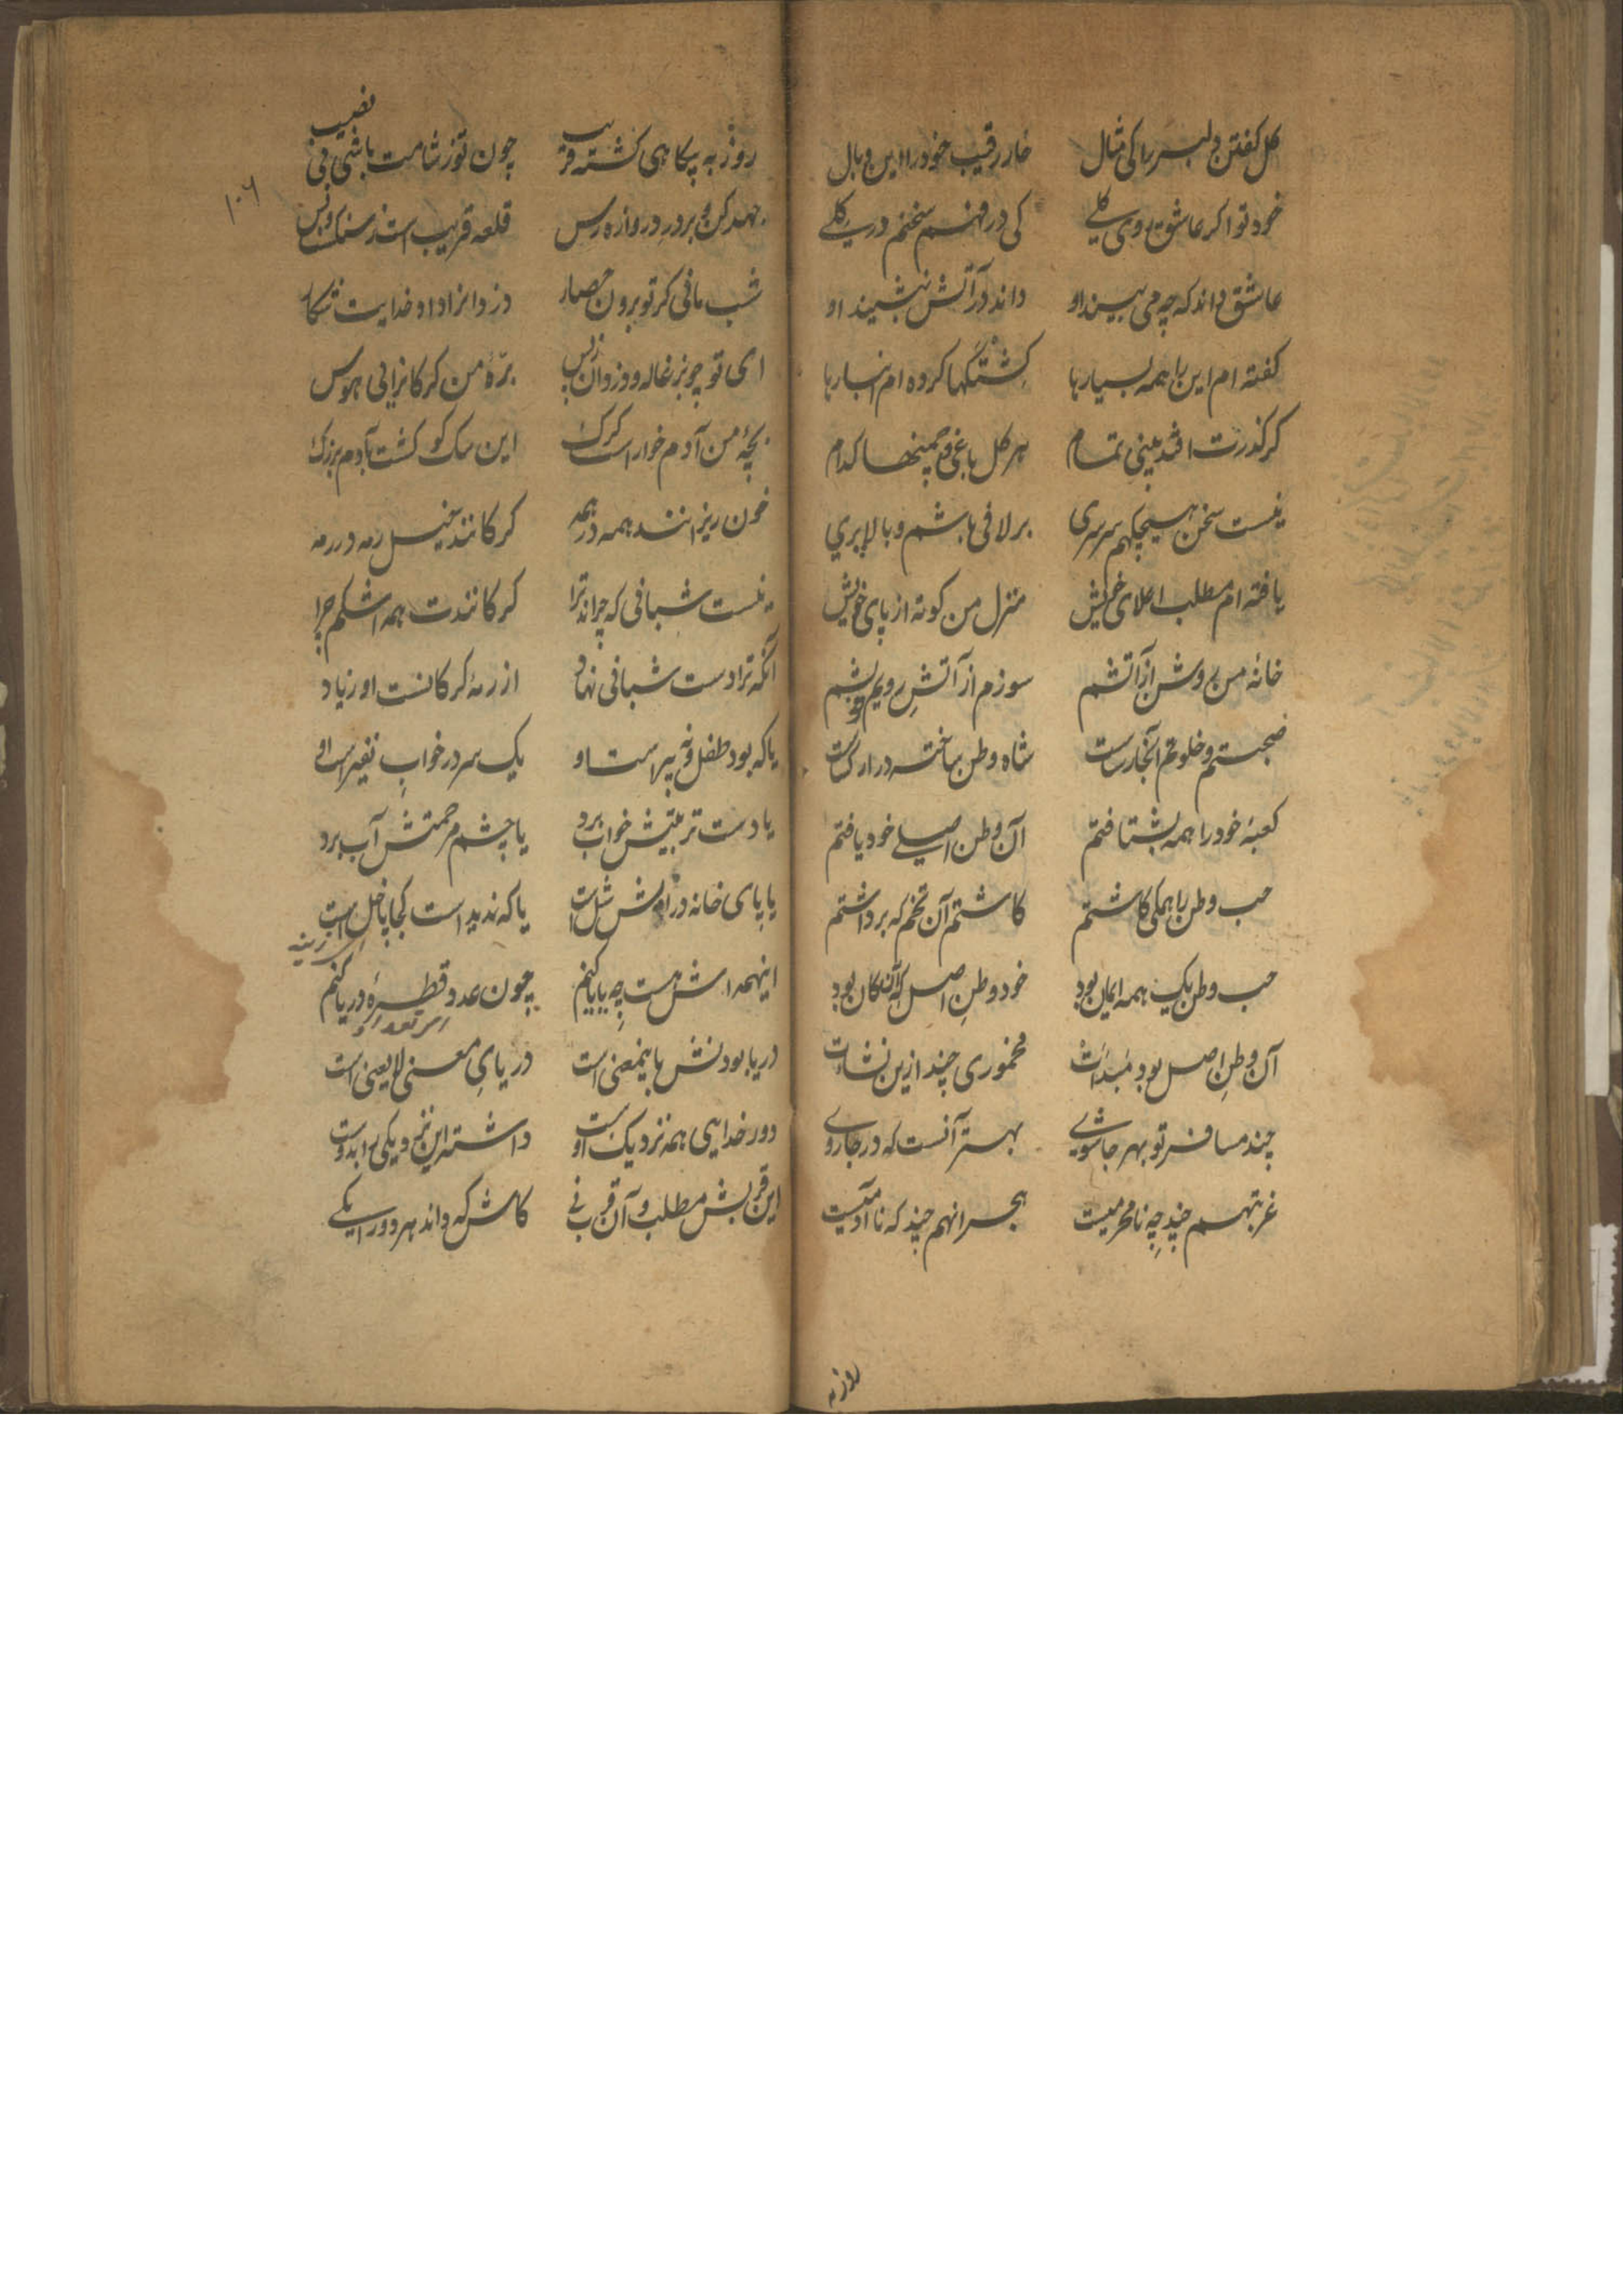 گل گفتن دلبر را کی مثال خار رقیب خود را این وبال
خود تو اگر عاشق روی گلی کی در فهم سخنم در
عاشق داند که چه می بیند او داند در آتش بنشیند او
گفته ام این را همه بسیارها کشتگها کرده ام انبارها
گر گذرت افتد بینی تمام هر گل باغی و چمنها کدام
نیست سخن هیچکهم سرسری بر لافی باشم و بالابری
یافته ام مطلب اعلای خویش منزل من کوته از پای خویش
خانهٔ من روشن از آتشم سوزم از آتش رویم
صحبتم و خلوتم آنجا راست شاه وطن ساخته در ارک
کعبهٔ خود را همه بشتافتم آن وطن اصلی خود یافتم
حب وطن را همگی کاشتم کاشتم آن تخم که برداشتم
حب وطن یک همه ایمان بود خود وطن اصل کان بود
آن وطن اصل بود مبدأت مخموری چند ازین نشأت
چند مسافر تو بهر جا شوی بهتر آنست که در جا روی
غربتهم چند چه نامحرمیست هجرانهم چند که ناآدمیست
روز به
۱۰۶
روز به پگاهی گشته قریب چون تو ز شامت باشی بی نصیب
جهد کن بر در دروازه رس قلعه قریب است
شب مانی گر تو برون حصار دزدانرا داد خدایت شکار
ای تو چو بزغاله و دزدان ز پس برهٔ من گرگانرا بی هوس
بچهٔ من آدم خوار است گرگ این سگ کو گشت بآدم بزرگ
خون ریزانند همه در همه گرگانند بخیل رمه در رمه
نیست شبانی که چراند ترا گرگانندت همه اشکم چرا
آنکه ترا دست شبانی نهاد از رمهٔ گرگانست او زیاد
یا که بود طفل و نه پیر است او یک سر در خواب
یا دست تربیتش خواب برد یا چشم مرحمتش آب برد
یا پای خانه در راهش شل است یا که ندید است کجا پا خل است
اینهمه اش هست چه پایان کنم چون عدد قطرهٔ دریا کنم
دریا بود نش باینمعنی است دریای معنی لایعنی است
دور خدایی همه نزدیک است او
این قربش مطلب و آن قرب نی کاش که داند هر دو را یکی